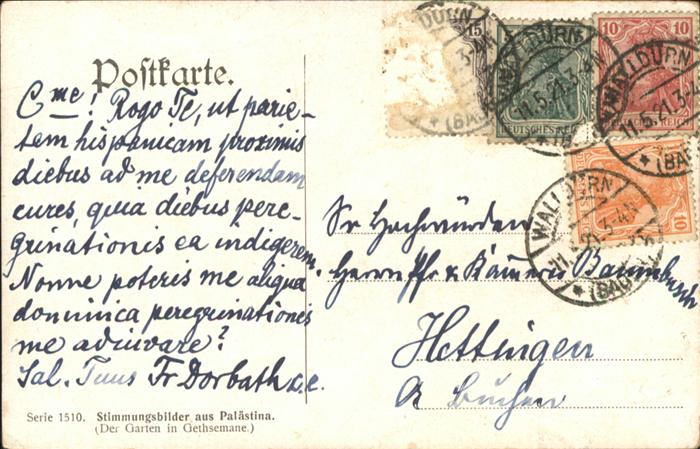 Postkarte.
Cme! Rogo Te, ut parie-
tem hispanicam proximis
diebus ad me deferendam
cures, quia diebus pere-
grinationis ea indigerem.
Nonne poteris me aliqua
dominica peregrinationis
me adiuvare?
Sal. Tuus Fr Dorbath c.e.
Serie 1510. Stimmungsbilder aus Palästina.
(Der Garten in Gethsemane.)
Sr Hochwürden
Herrn Pfr & Kämmerer Baumbusch
Hettingen
A Buchen
15
DEUTSCHES REICH
10
REICH
10
WALLDÜRN
11.5.21.3-4N
* (BADEN)
WALLDÜRN
11.5.21.3-4N
* (BADEN)